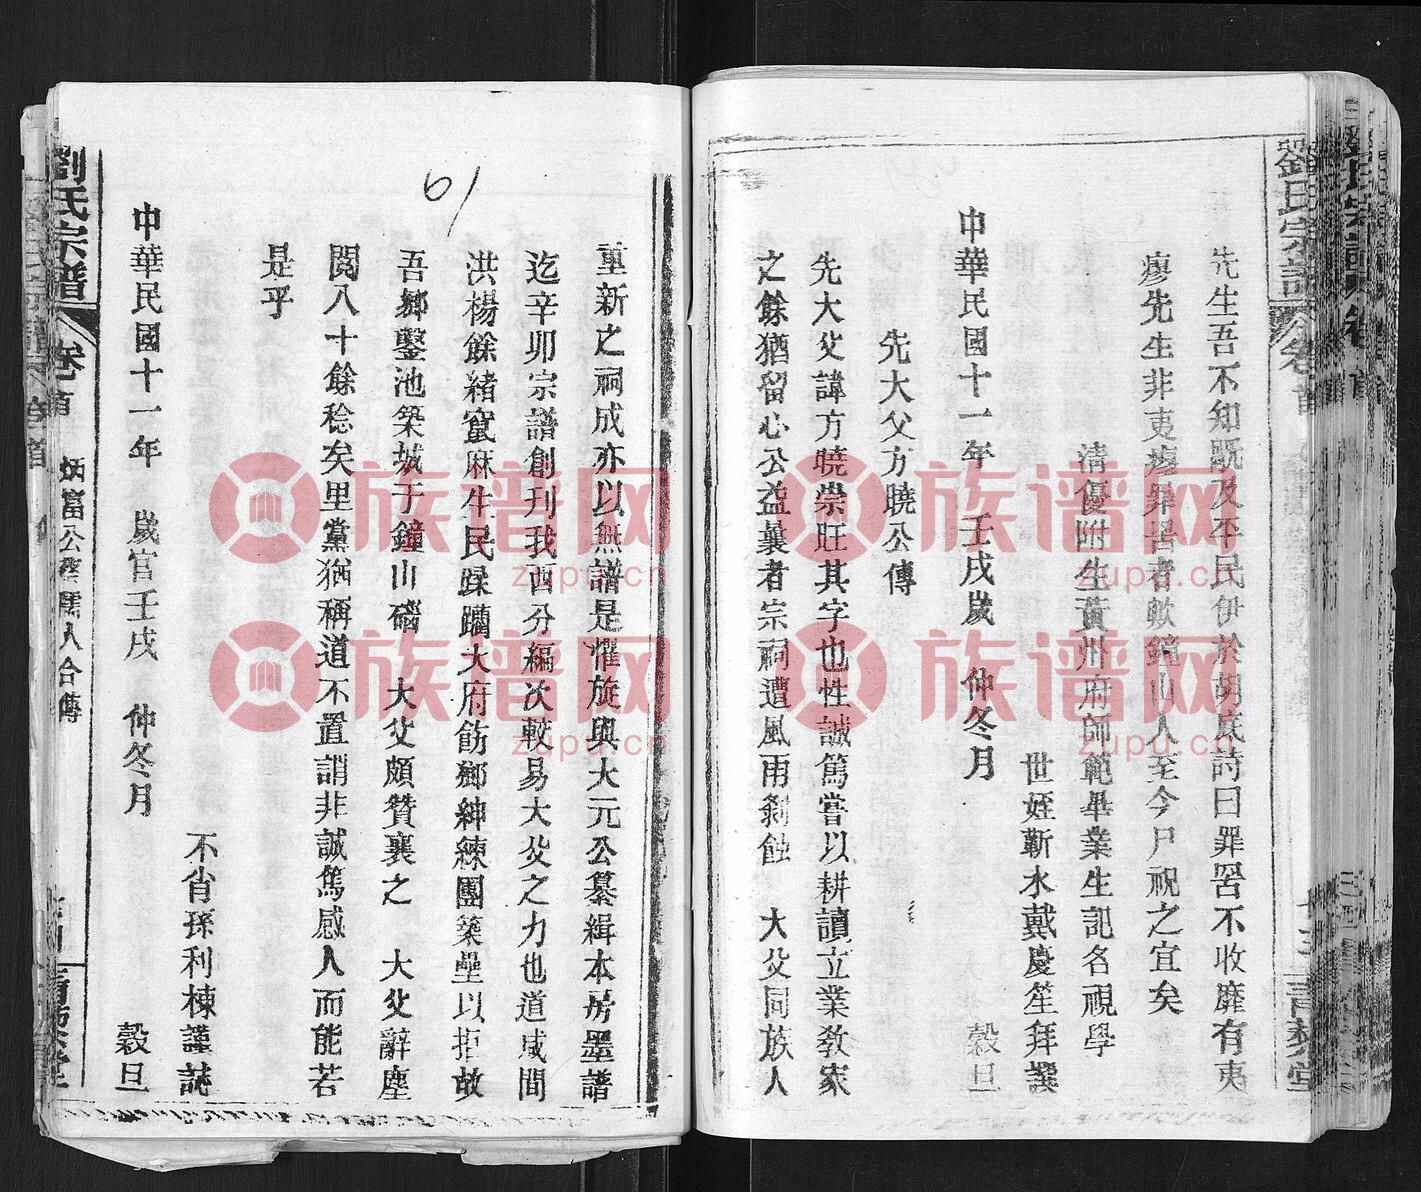 劉氏宗譜 卷首
先生吾不知既及平民伊於胡底詩曰罪罟不收靡有夷
廖先生非夷瘳罪罟者歟鐘山人至今尸祝之宜矣
清優附生黃州府師範畢業生記名視學
世姪蘄水戴慶笙拜撰
中華民國十一年 壬戌歲 仲冬月 穀旦
先大父方曉公傳
先大父諱方曉崇旺其字也性誠篤嘗以耕讀立業教家
之餘猶留心公益曩者宗祠遭風雨剝蝕 大父同族人
重新之祠成亦以無譜是懼旋與大元公纂緝本房墨譜
迄辛卯宗譜創刊我西分編次較易大父之力也道咸間
洪楊餘緒竄麻牛民蹂躪大府飭鄉紳練團築壘以拒故
吾鄉鑿池築城于鐘山磖 大父頗贊襄之 大父辭塵
閱八十餘稔矣里黨猶稱道不置誚非誠篤感人而能若
是乎
不省孫利棟謹誌
中華民國十一年 歲官壬戌 仲冬月 穀旦
劉氏宗譜 卷首 炳富公 孺人合傳
61
族譜网
zupu.cn
族譜网
zupu.cn
族譜网
zupu.cn
族譜网
zupu.cn